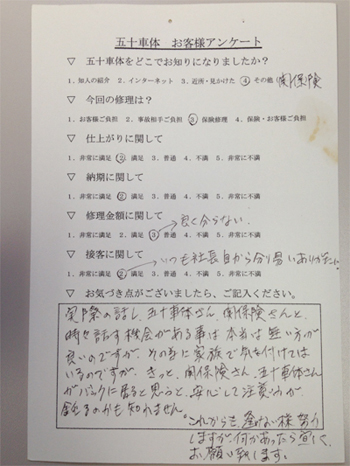 五十車体 お客様アンケート
▽ 五十車体をどこでお知りになりましたか？
1．知人の紹介 2．インターネット 3．近所・見かけた ④ その他（関保険
▽ 今回の修理は？
1．お客様ご負担 2．事故相手ご負担 ③ 保険修理 4．保険・お客様ご負担
▽ 仕上がりに関して
1．非常に満足 ② 満足 3．普通 4．不満 5．非常に不満
▽ 納期に関して
1．非常に満足 ② 満足 3．普通 4．不満 5．非常に不満
▽ 修理金額に関して
良く分らない．
1．非常に満足 2．満足 ③ 普通 4．不満 5．非常に不満
▽ 接客に関して
いつも社長自から分り易い ありがたい。
1．非常に満足 ② 満足 3．普通 4．不満 5．非常に不満
▽ お気づき点がございましたら、ご記入ください。
実際の話し、五十車体さん、関保険さんと、
時々話す機会がある事は本当は無い方が
良いのですが、その為に家族で気を付けては
いるのですが、きっと、関保険さん、五十車体さん
がバックに居ると思うと、安心して注意力が
鈍るのかも知れません。
これからも、逢わない様努力
しますが何かあったら宜しく
お願い致します。